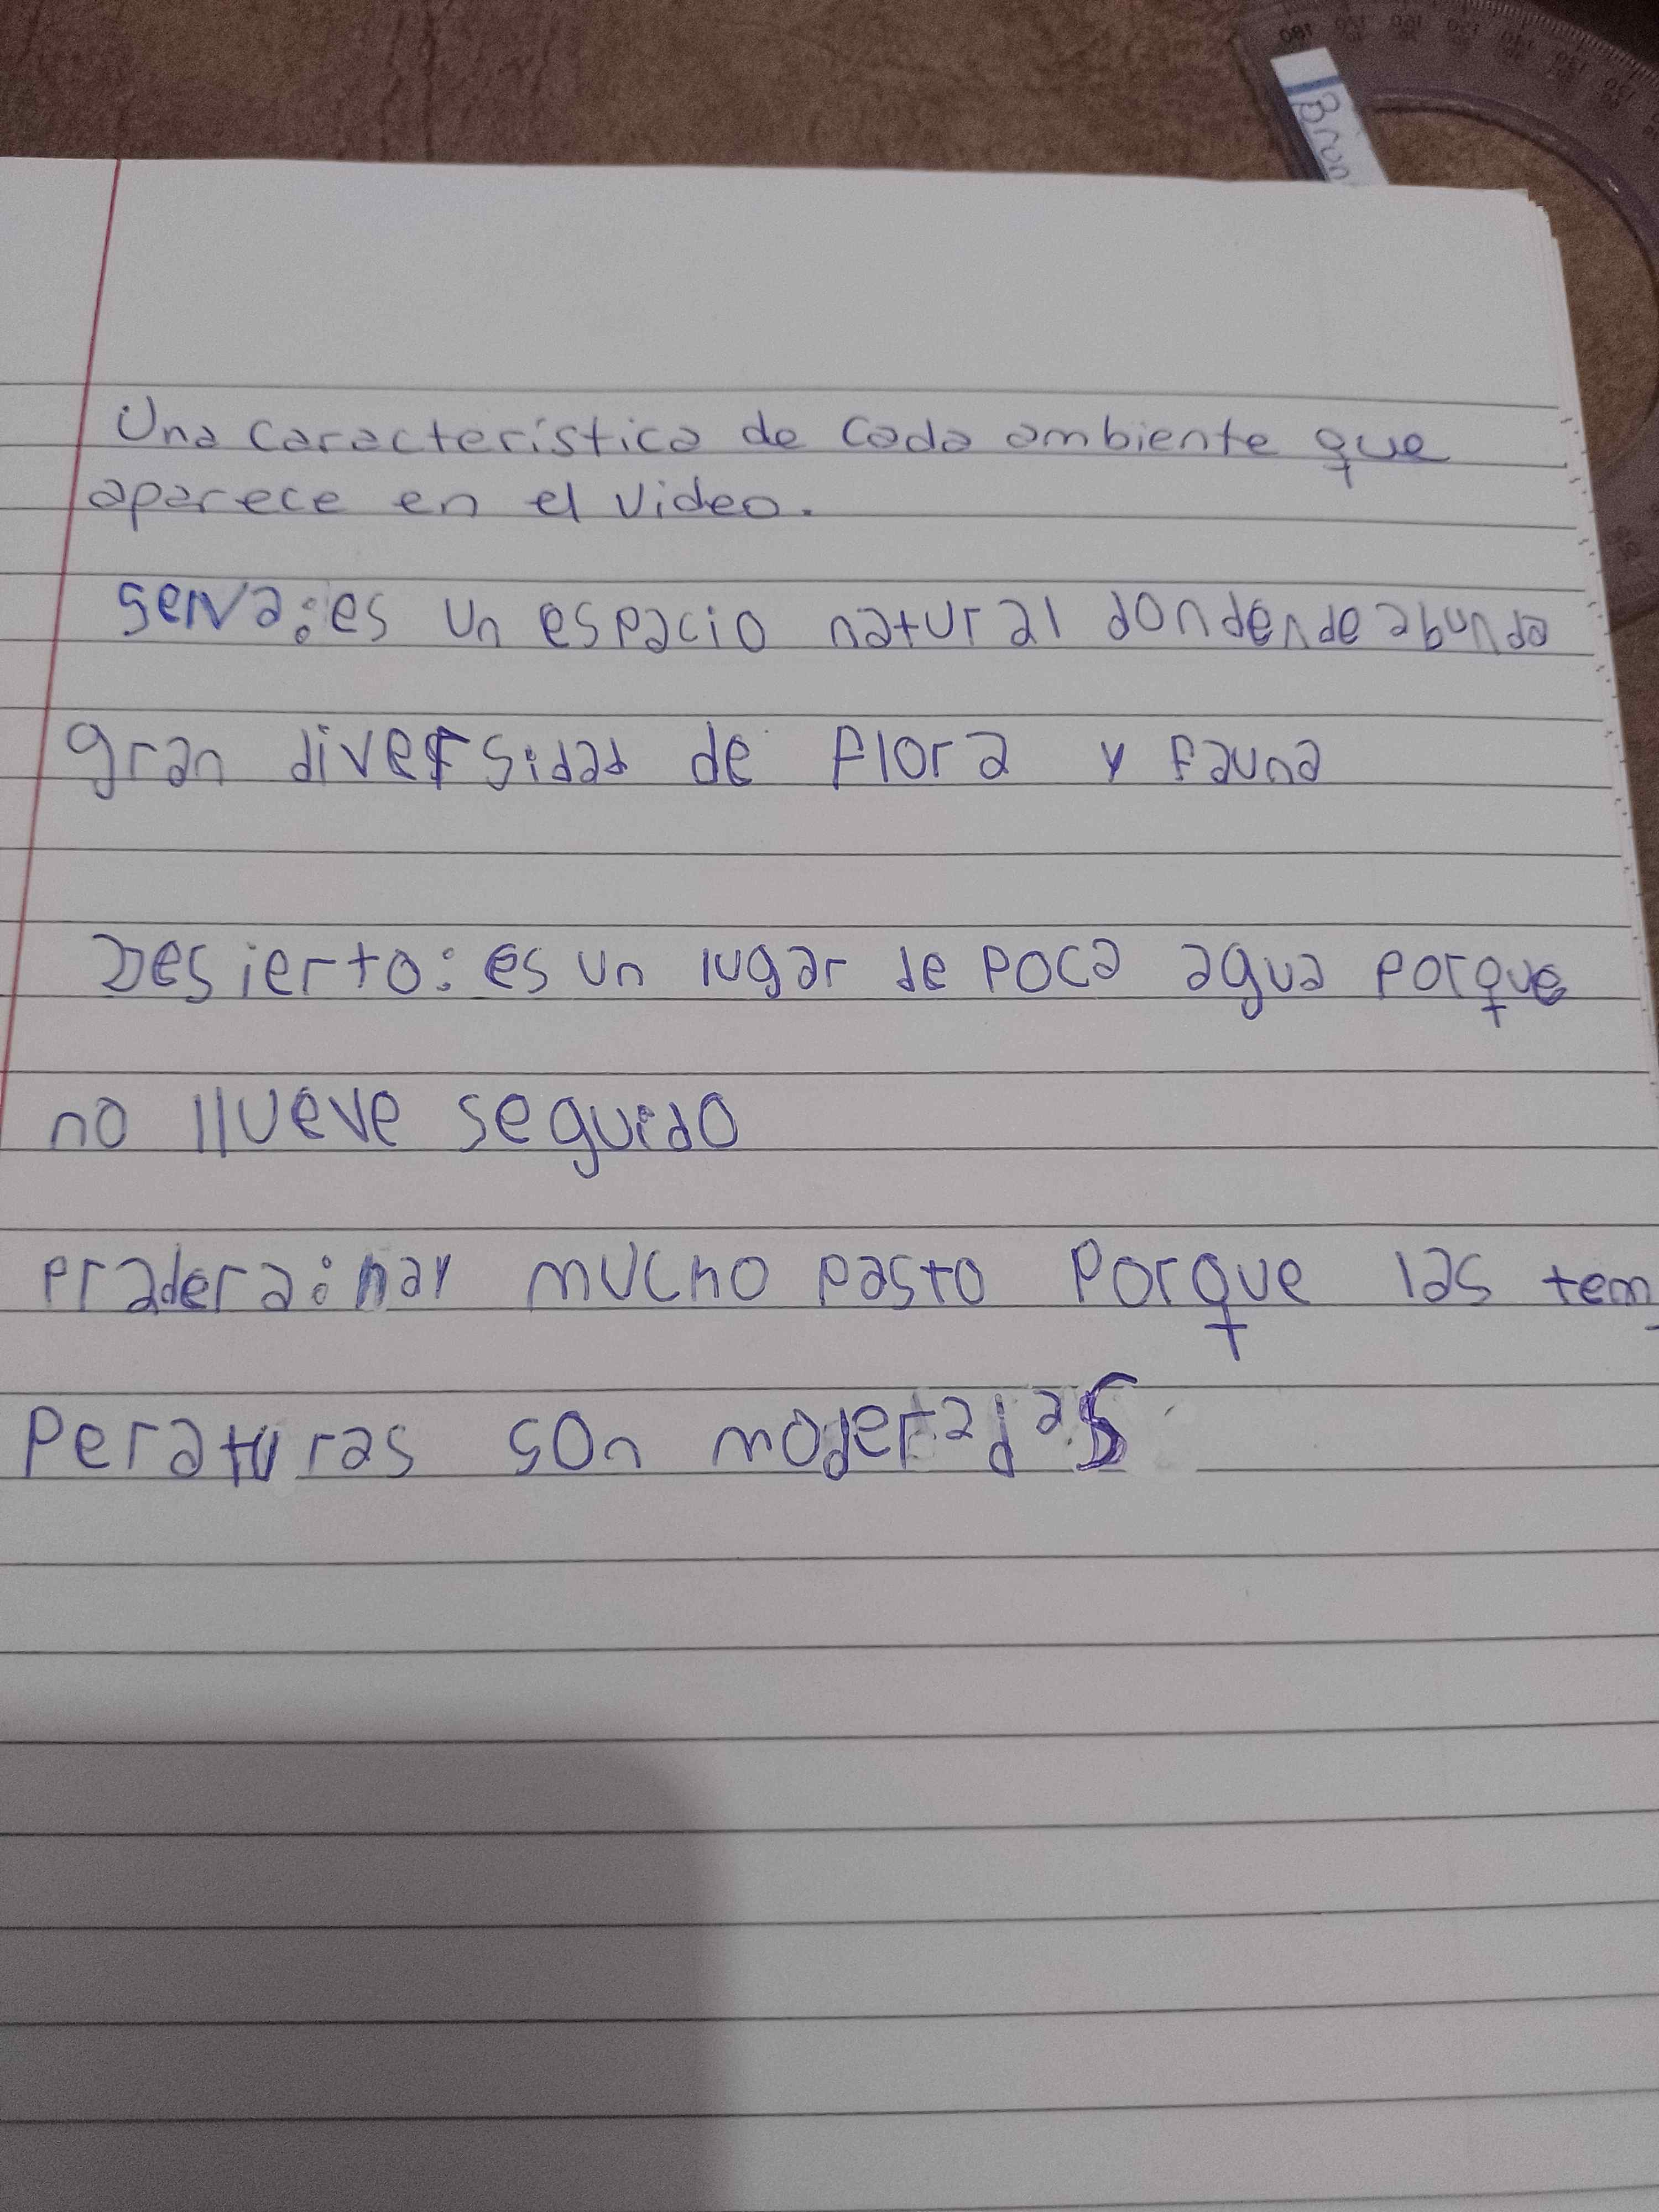 Bran
Una característica de cada ambiente que
aparece en el video.
selva: es un espacio natural dondende abunda
gran diversidad de flora y fauna
Desierto: es un lugar de poca agua porque
no llueve seguido
Pradera: hay mucho pasto Porque las tem
Peraturas son moderadas